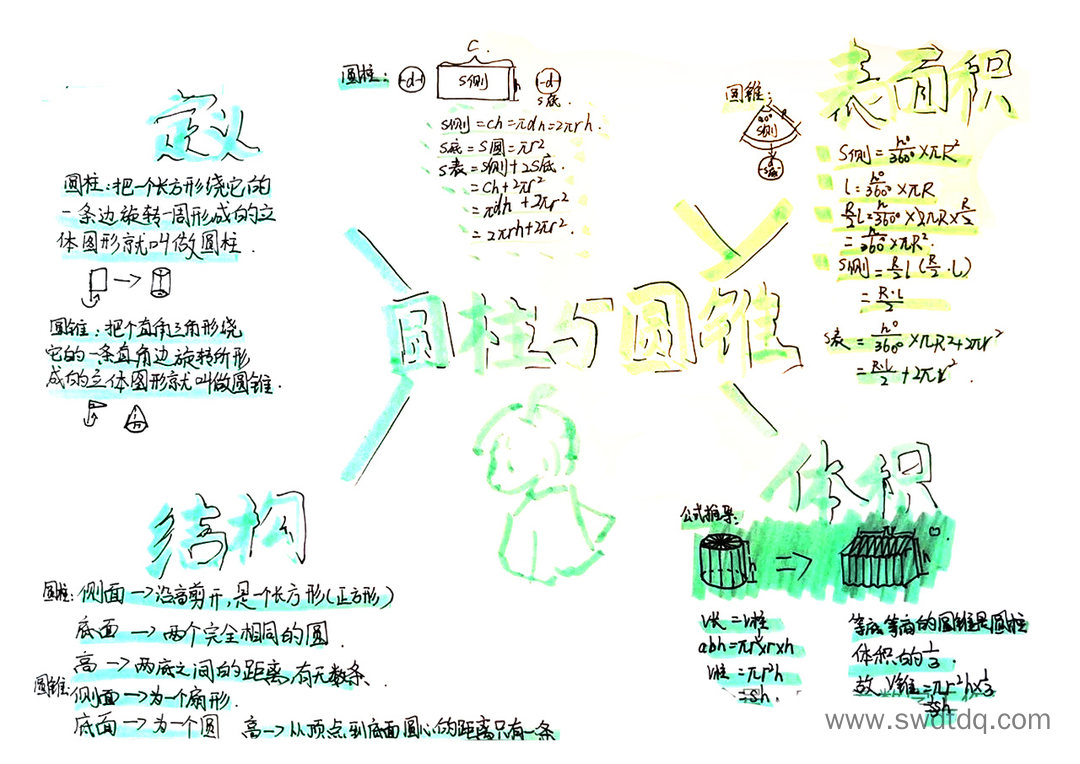 圆柱与圆锥
定义
圆柱：把一个长方形绕它的
一条边旋转一周形成的立
体图形就叫做圆柱.
圆锥：把个直角三角形绕
它的一条直角边旋转所形
成的立体图形就叫做圆锥.
圆柱：
C.
-d-
S侧
h
-d-
S底.
S侧=ch=πdh=2πrh.
S底=S圆=πr²
S表=S侧+2S底.
=ch+2πr²
=πdh+2πr²
=2πrh+2πr².
表面积
圆锥：
S侧
d
S底
S侧=n°/360°×πR²
l=n°/360°×πR
R/2l=n/360°×2πR×R/2
=n/360°×πR².
S侧=R/2l(R/2·l)
=R·l/2
S表=n°/360°×πR2+2πr²
=R·l/2+2πr²
结构
圆柱：侧面→沿高剪开,是一个长方形(正方形)
底面→两个完全相同的圆.
高→两底之间的距离,有无数条、
圆锥：侧面→为一个扇形.
底面→为一个圆
高→从顶点到底面圆心的距离只有一条
体积
公式推导：
h
πr
h
V长=V柱
abh=πr×r×h
V柱=πr²h
=sh
等底等高的圆锥是圆柱
体积的1/3.
故V锥=πr²h×1/3
=1/3sh
www.swdtdq.com